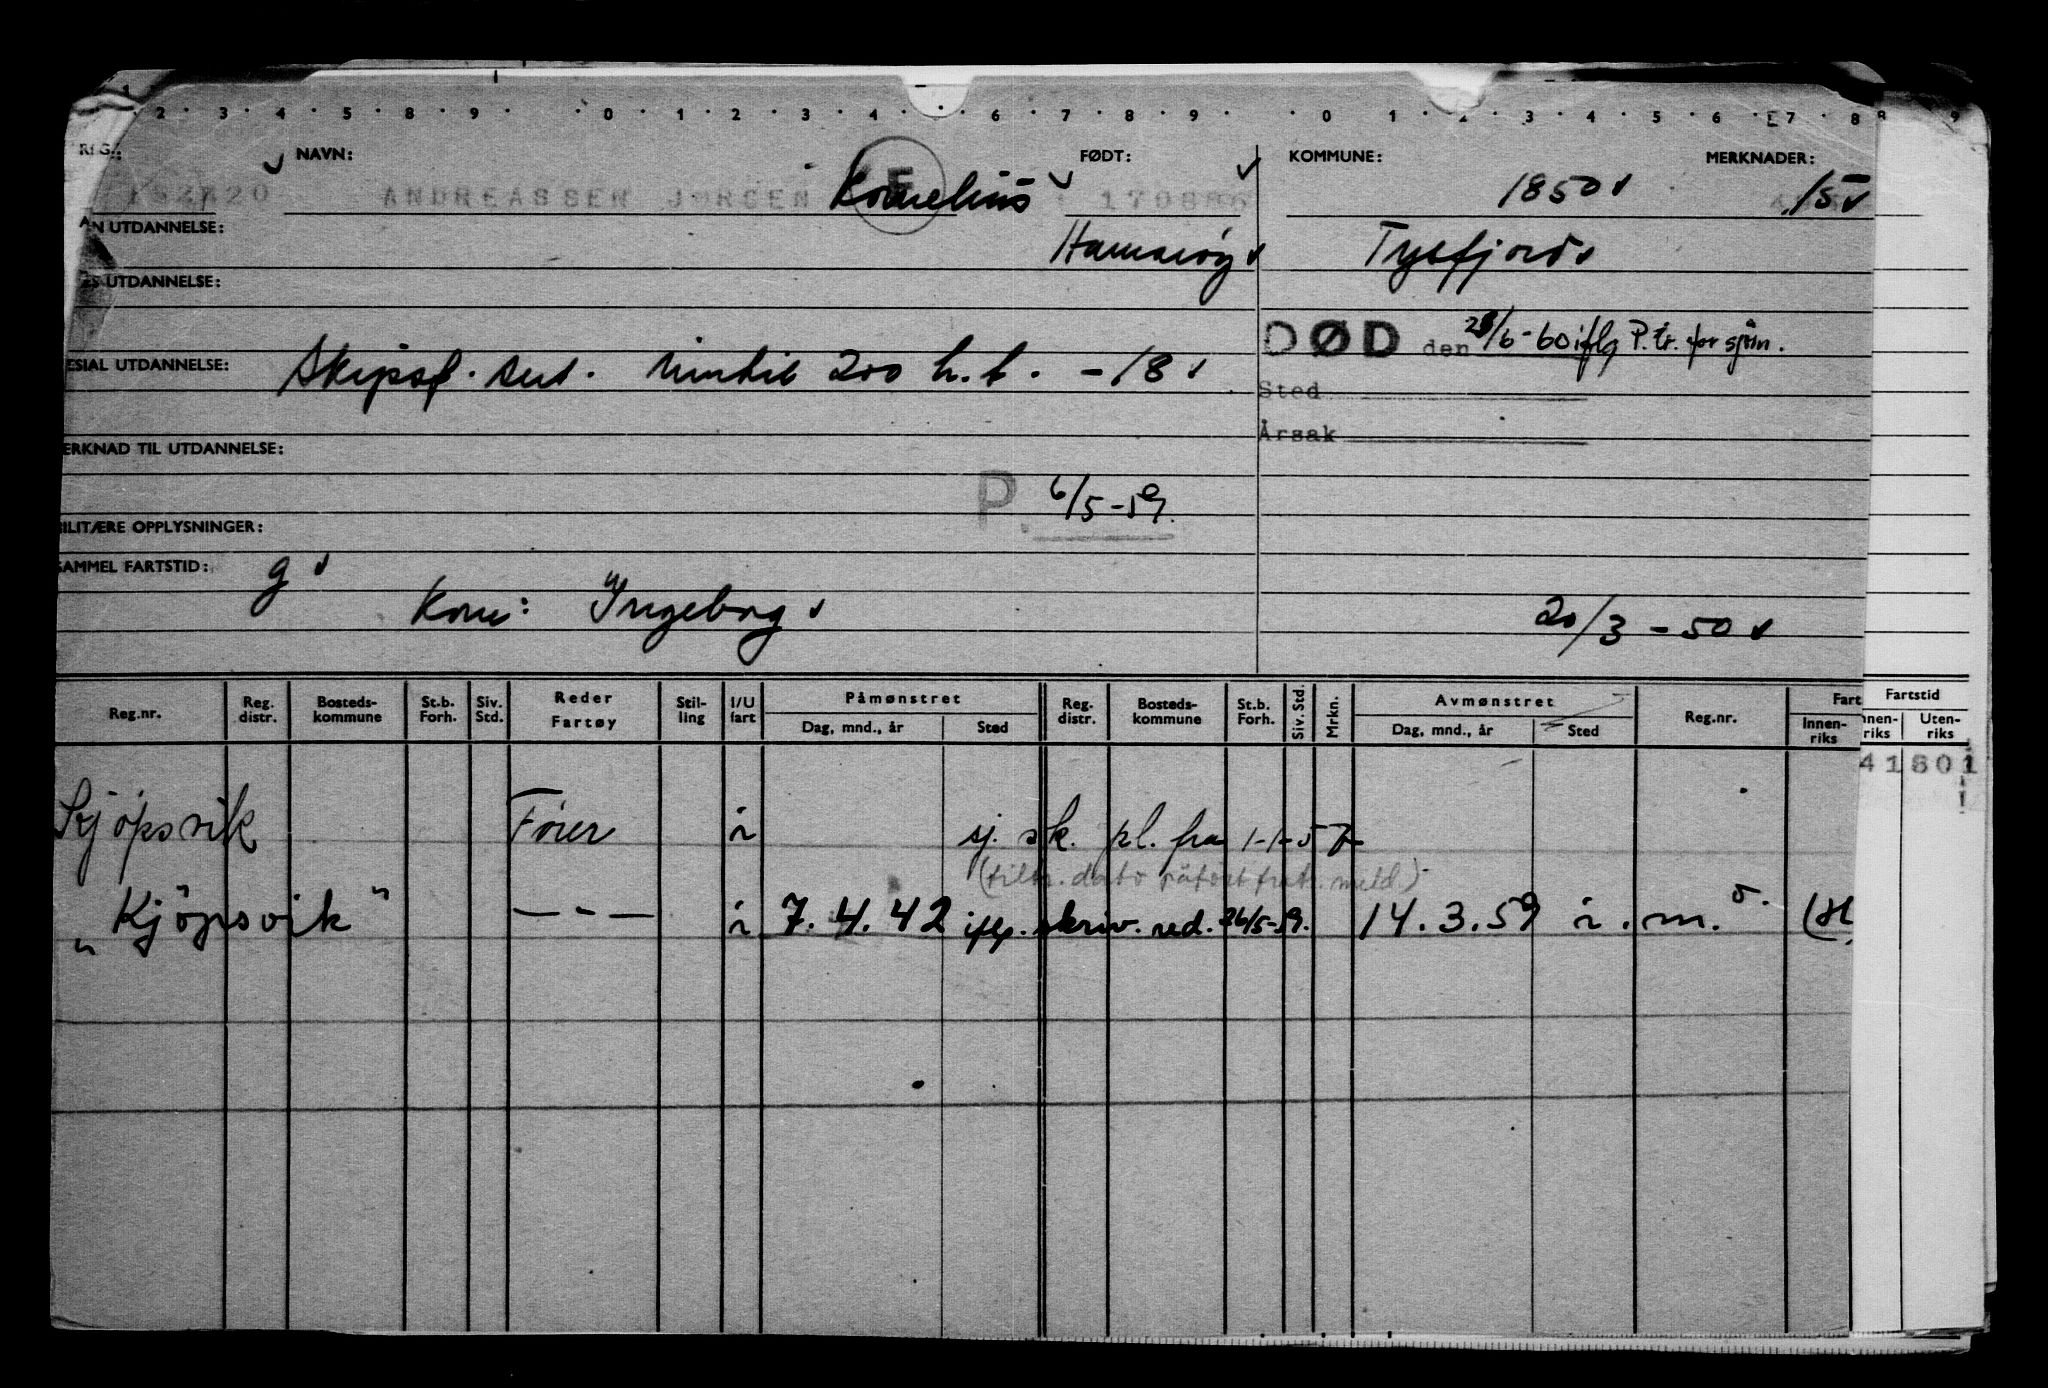 1 2 3 4 5 8 9 0 1 2 3 4 6 7 8 9 0 1 2 3 4 5 6 7 8 8 9
REG.: NAVN: FØDT: KOMMUNE: MERKNADER:
ANDREASSEN JØRGEN Kornelius 170886 1850 15
AN UTDANNELSE: Hamarøy Tysfjord
S UTDANNELSE:
DØD den 28/6-60 iflg P.tr. for sjøm.
ESIAL UTDANNELSE: Skipsf. sert. inntil 200 h.k. -18
Sted
Årsak
ERKNAD TIL UTDANNELSE:
P. 6/5-59.
MILITÆRE OPPLYSNINGER:
SAMMEL FARTSTID: g
Kone: Ingeborg 20/3-50
Reg.nr. Reg. distr. Bosteds-kommune St.b. Forh. Siv. Std. Reder Fartøy Stil-ling I/U fart Påmønstret Dag, mnd., år Sted Reg. distr. Bosteds-kommune St.b. Forh. Siv. Std. Mrkn. Avmønstret Dag, mnd., år Sted Reg.nr. Fart Innen-riks Fartstid nnen-riks Uten-riks
41801
Kjöpsvik Fóier i sj. sk. pl. fra 1-1-57
(tiltr. dato påført fratr. meld.)
"Kjöpsvik" — - — i 7.4.42 iflg. skriv. red. 26/5-59. 14.3.59 i. m.